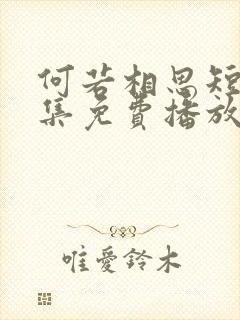 何若相思短
集免費播放
唯愛鈴木